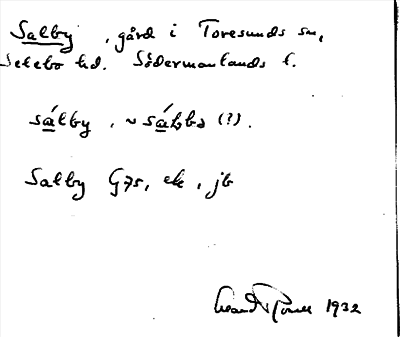 Salby, gård i Toresunds sn,
Selebo hd. Södermanlands l.
sálby, ~ sábbə (?).
Salby G75, ek, jb
1932